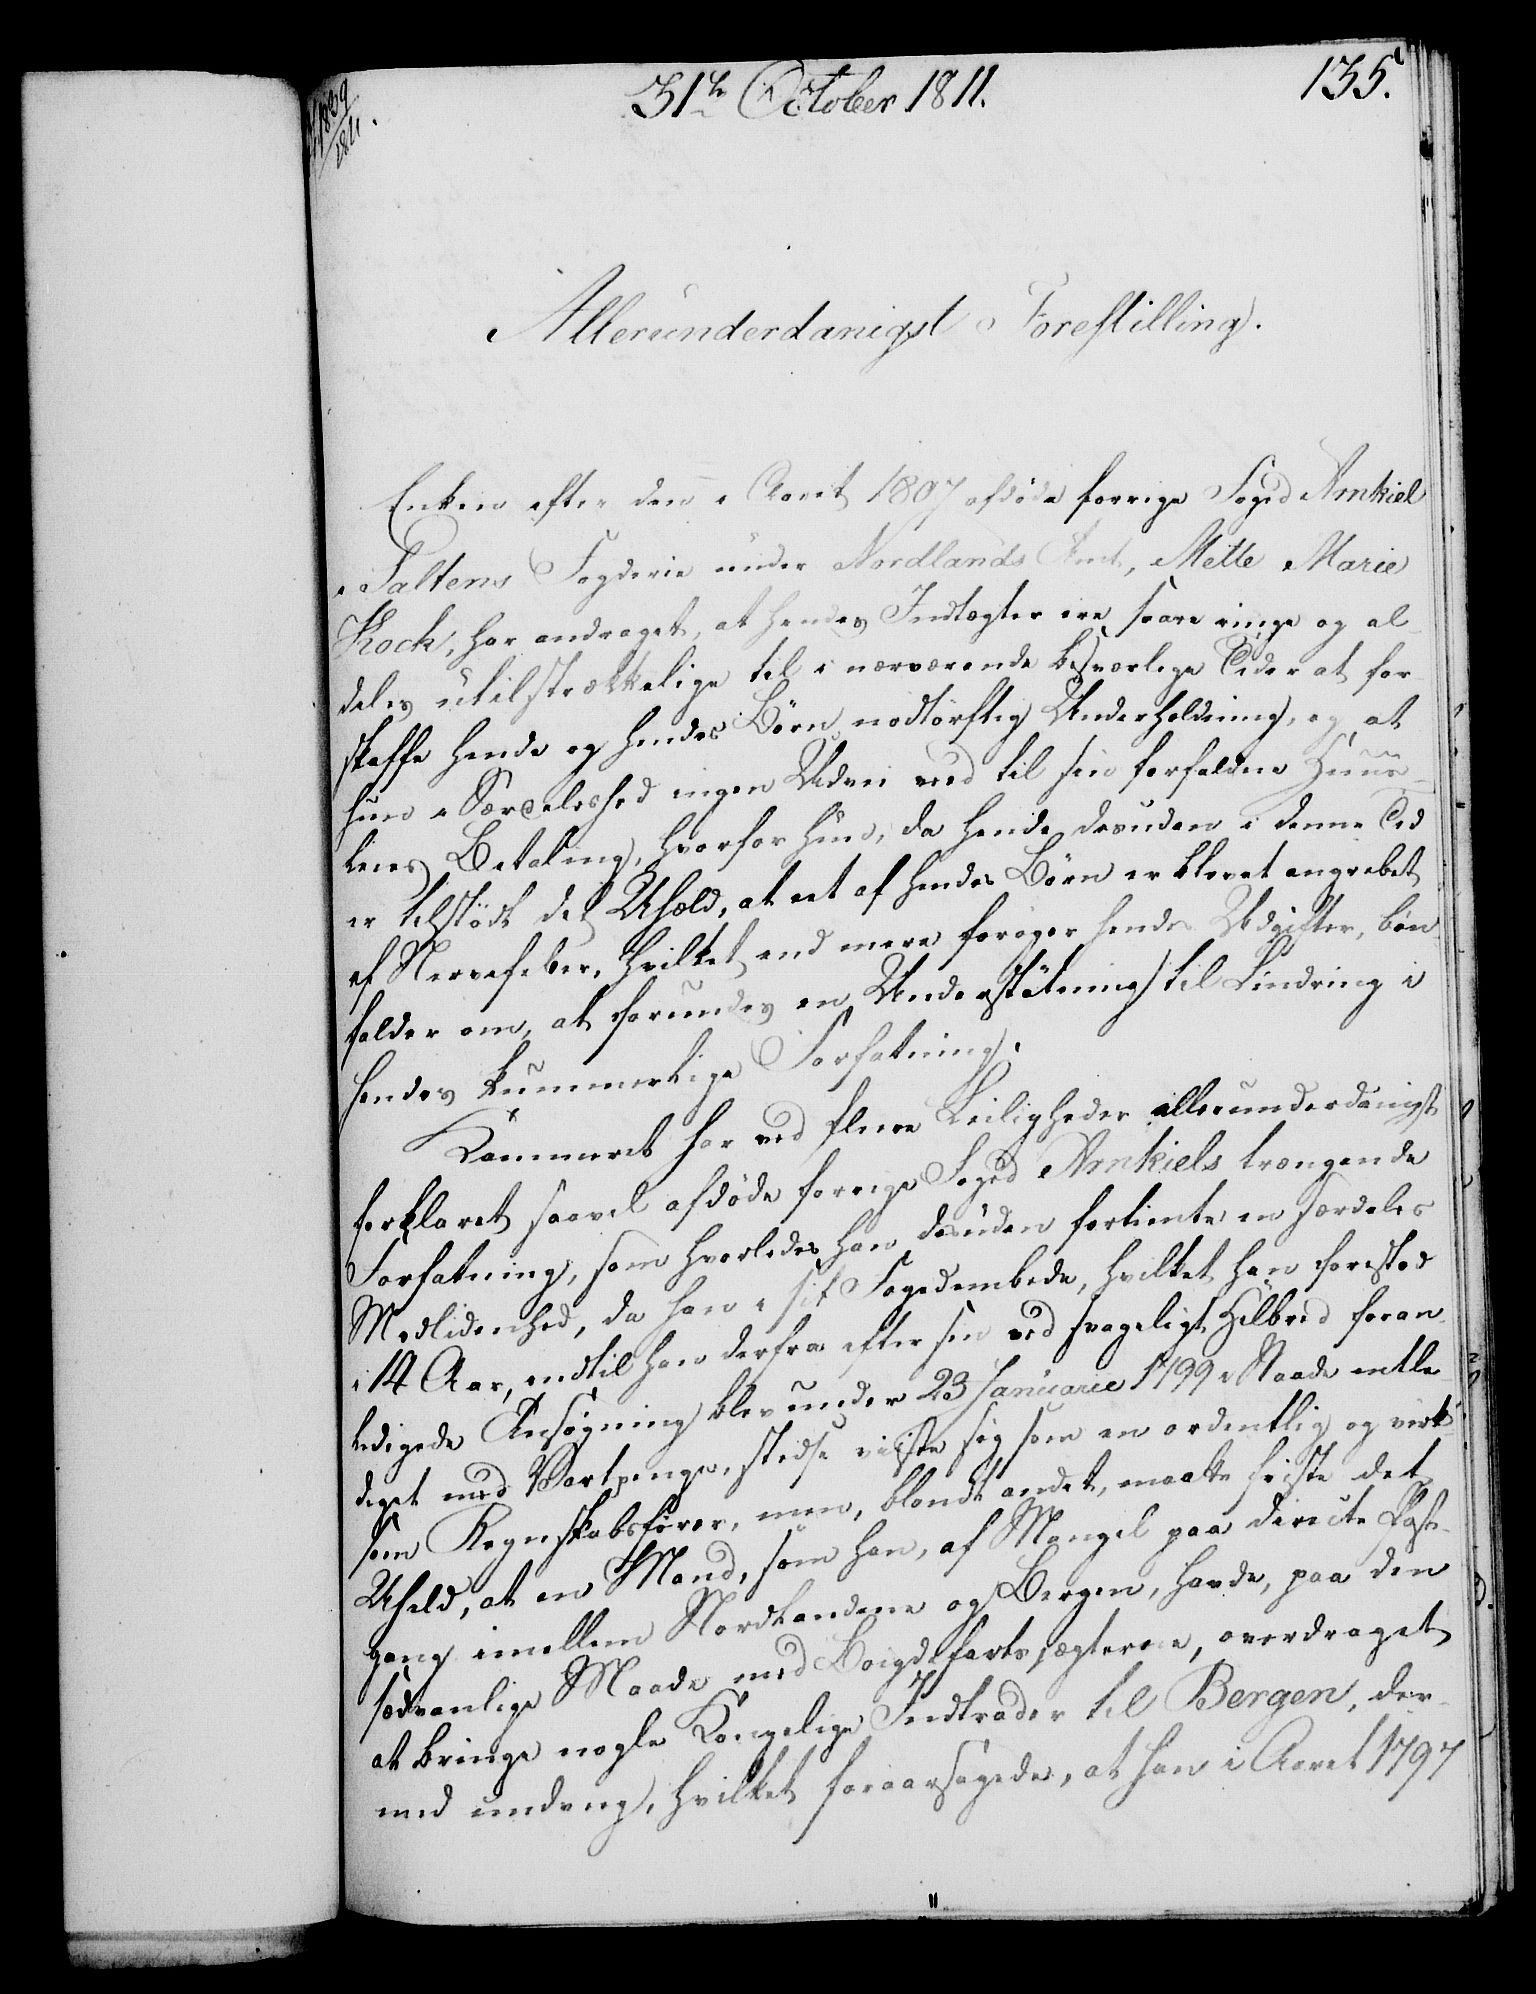 31te October 1811.
135.
1839
1811.
Allerunderdanigst Forestilling.
Enken efter den i Aaret 1807 afdöde forrige Foged Arnkiel
i Saltens Fogderie under Nordlands Amt, Mette Marie
Kock, har andraget, at hendes Indtægter ere saare ringe og al-
deles utilstrækkelige til i nærværende besværlige Tider at for-
skaffe hende og hendes Börn nödtörftig Underholdning, og at
hun i Særdeleshed ingen Udvei veed til sin forfaldne Huus-
leies Betaling, hvorfor hun, da hende desuden i denne Tid
er tilstödt det Uheld, at eet af hendes Börn er blevet angrebet
af Nervefeber, hvilket end mere foröger hendes Udgifter, bön-
falder om, at forundes en Understötning til Lindring i
hendes kummerlige Forfatning.
Kammeret har ved flere Leiligheder allerunderdanigst
forklaret saavel afdöde forrige Foged Arnkiels trængende
Forfatning, som hvorledes han desuden fortiente en særdeles
Medlidenhed, da han i sit Fogedembede, hvilket han forestod
i 14 Aar, indtil han derfra efter sin ved svageligt Helbred foran-
ledigede Ansögning blev under 23 Januarie 1799 i Naade entle-
diget med Vartpenge, stedse viiste sig som en ordentlig og virk-
som Regnskabsförer, men, blandt andet, maatte friste det
Uheld, at en Mand, som han, af Mangel paa directe Post-
gang imellem Nordlandene og Bergen, havde, paa den
sædvanlige Maade med Böigdefartsjægterne, overdraget
at bringe nogle Kongelige Indtrader til Bergen, der-
med undveg, hvilket foraarsagede, at han i Aaret 1797